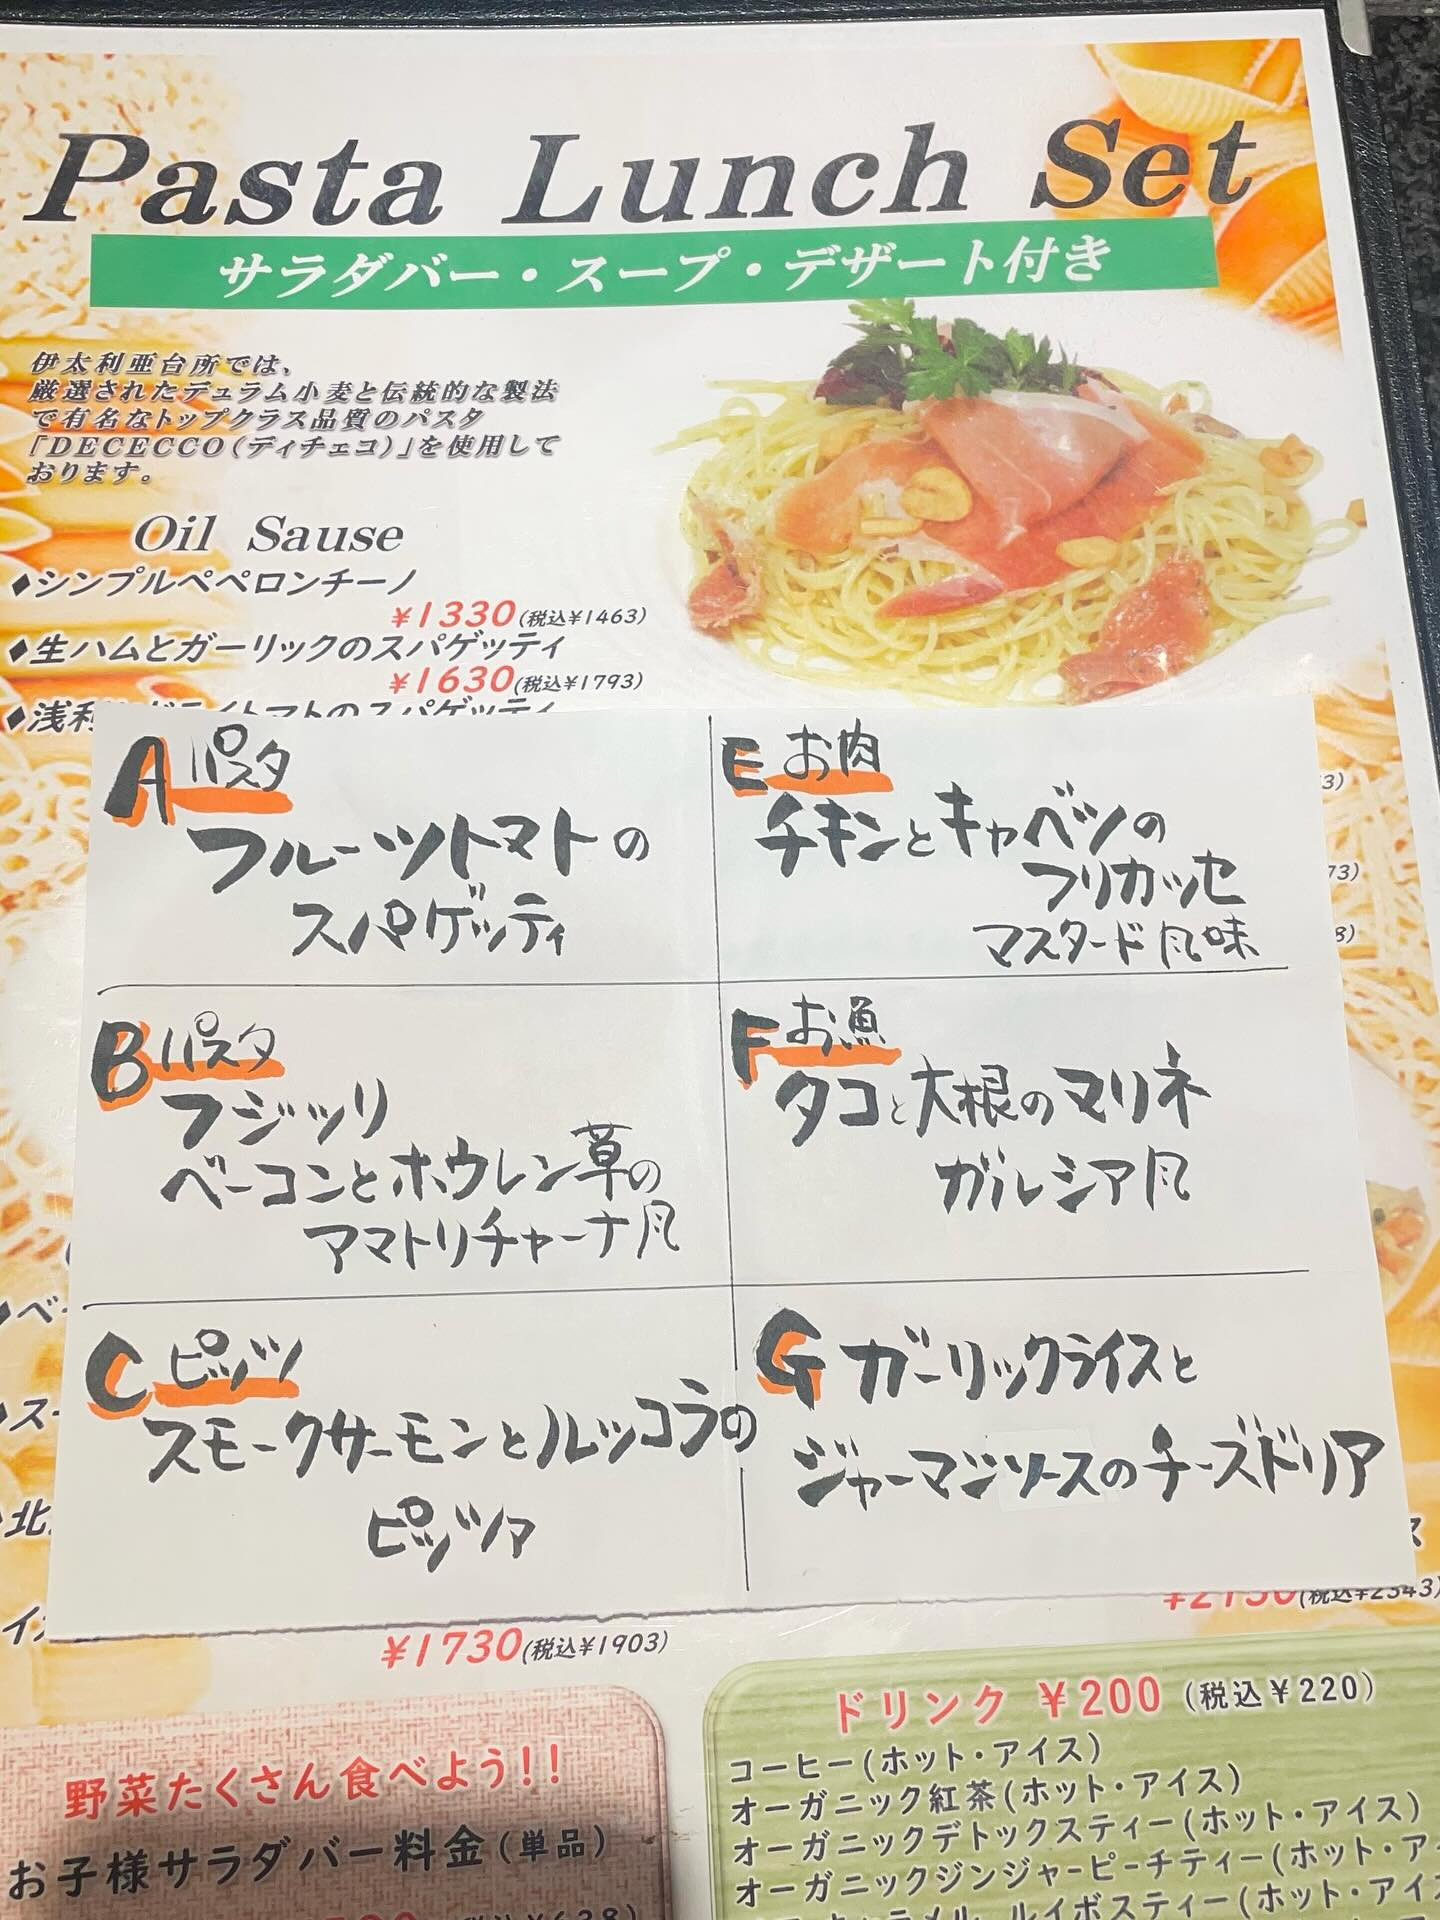 Pasta Lunch Set
サラダバー・スープ・デザート付き
伊太利亜台所では、
厳選されたデュラム小麦と伝統的な製法
で有名なトップクラス品質のパスタ
「DECECCO(ディチェコ)」を使用して
おります。
Oil Sause
◆シンプルペペロンチーノ
¥1330(税込¥1463)
◆生ハムとガーリックのスパゲッティ
¥1630(税込¥1793)
A パスタ
フルーツトマトの
スパゲッティ
B パスタ
フジッリ
ベーコンとホウレン草の
アマトリチャーナ風
C ピッツ
スモークサーモンとルッコラの
ピッツァ
E お肉
チキンとキャベツの
フリカッセ
マスタード風味
F お魚
タコと大根のマリネ
ガルシア風
G ガーリックライスと
ジャーマンソースのチーズドリア
¥1730(税込¥1903)
¥2130(税込¥2343)
野菜たくさん食べよう!!
お子様サラダバー料金(単品)
ドリンク ¥200 (税込¥220)
コーヒー(ホット・アイス)
オーガニック紅茶(ホット・アイス)
オーガニックデトックスティー(ホット・アイス)
オーガニックジンジャーピーチティー(ホット・ア
ルイボスティー(ホット・アイ